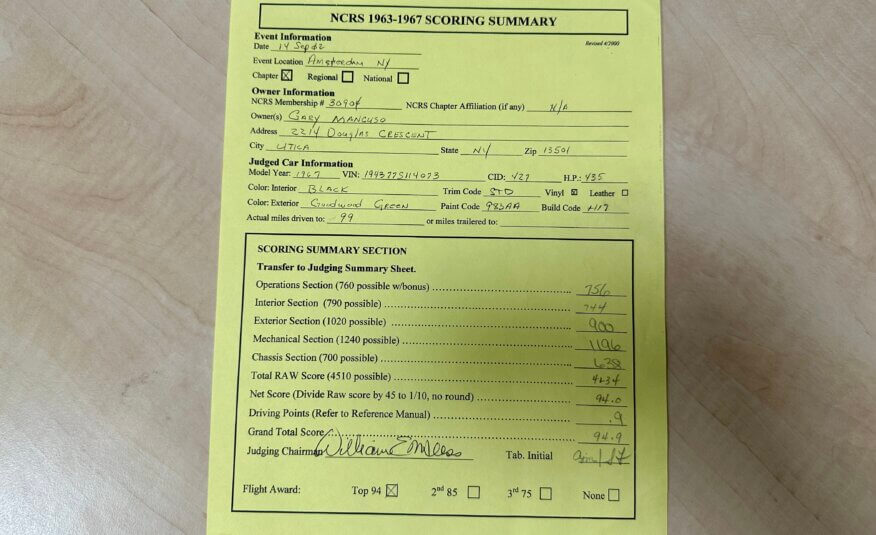 NCRS 1963-1967 SCORING SUMMARY
Event Information
Revised 4/2000
Date 14 Sep 02
Event Location Amsterdam NY
Chapter ☒ Regional ☐ National ☐
Owner Information
NCRS Membership # 30904 NCRS Chapter Affiliation (if any) N/A
Owner(s) GARY MANCUSO
Address 2214 DOUGLAS CRESCENT
City UTICA State NY Zip 13501
Judged Car Information
Model Year: 1967 VIN: 194377S114073 CID: 427 H.P.: 435
Color: Interior BLACK Trim Code STD Vinyl ☒ Leather ☐
Color: Exterior Goodwood GREEN Paint Code 983AA Build Code
Actual miles driven to: 99 or miles trailered to:
SCORING SUMMARY SECTION
Transfer to Judging Summary Sheet.
Operations Section (760 possible w/bonus) 756
Interior Section (790 possible) 744
Exterior Section (1020 possible) 900
Mechanical Section (1240 possible) 1196
Chassis Section (700 possible) 638
Total RAW Score (4510 possible) 4234
Net Score (Divide Raw score by 45 to 1/10, no round) 94.0
Driving Points (Refer to Reference Manual) .9
Grand Total Score 94.9
Judging Chairman William E Tab. Initial
Flight Award: Top 94 ☒ 2nd 85 ☐ 3rd 75 ☐ None ☐